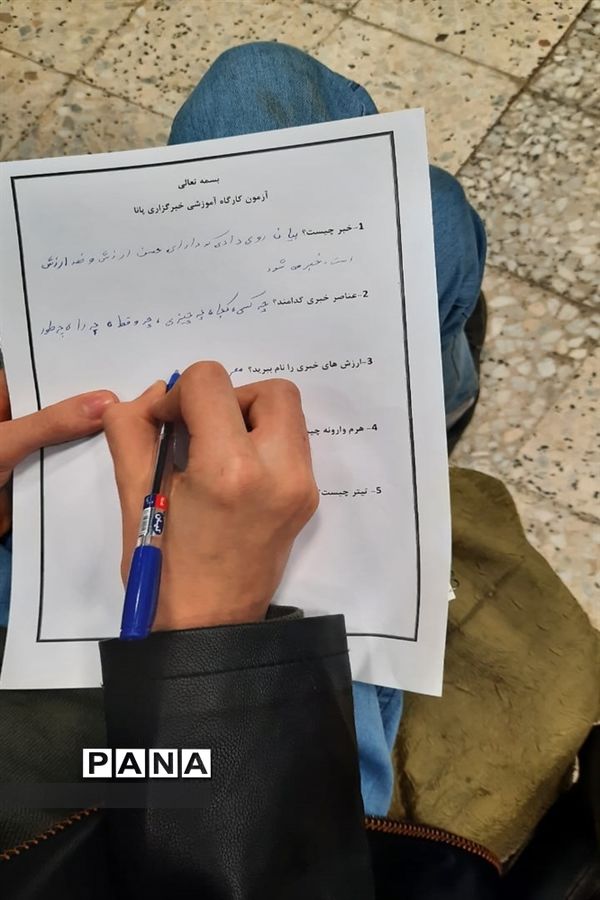 بسمه تعالی
آزمون کارگاه آموزشی خبرگزاری پانا
1-خبر چیست؟ بیان روی دادی که دارای ارزش و ضد ارزش
است. خبر می شود
2-عناصر خبری کدامند؟ چه کسی، کجا، چه چیزی، چه وقط، چ را، چطور
3-ارزش های خبری را نام ببرید؟
4- هرم وارونه
5- تیتر چیست؟
PANA